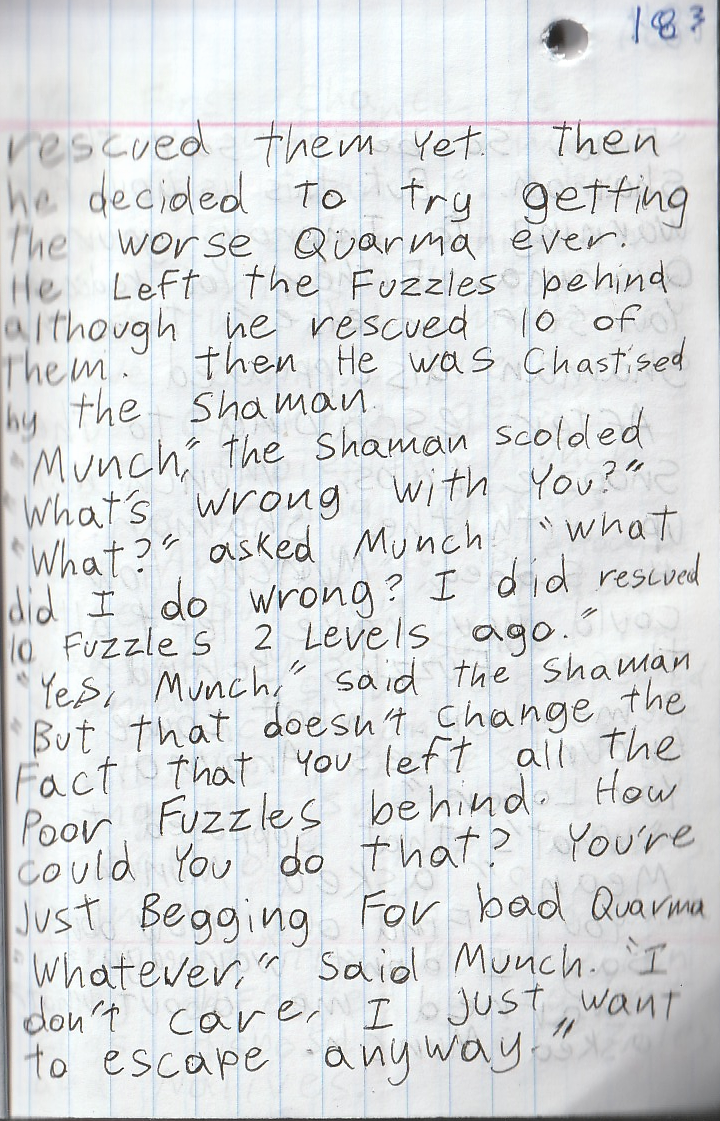 183
rescued them yet. then
he decided to try getting
the worse Quarma ever.
He Left the Fuzzles behind
although he rescued 10 of
Them. then He was Chastised
by the Shaman.
"Munch," the Shaman scolded
"What's wrong with You?"
"What?" asked Munch. "what
did I do wrong? I did rescued
10 Fuzzles 2 Levels ago."
"Yes, Munch," said the Shaman
"But that doesn't change the
Fact that You left all the
Poor Fuzzles behind. How
could You do that? You're
Just Begging For bad Quarma
"Whatever," said Munch. "I
don't care, I just want
to escape anyway."